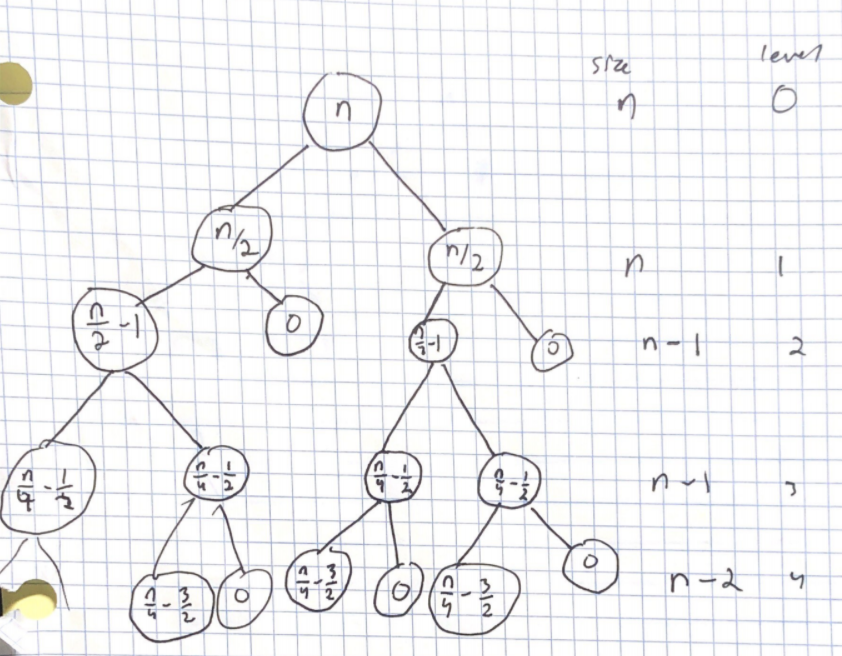 size level
n n 0
n/2 n/2 n 1
n/2 - 1 0 n/2 - 1 0 n-1 2
n/4 - 1/2 n/4 - 1/2 n/4 - 1/2 n/4 - 1/2 n-1 3
n/4 - 3/2 0 n/4 - 3/2 0 n/4 - 3/2 0 n-2 4